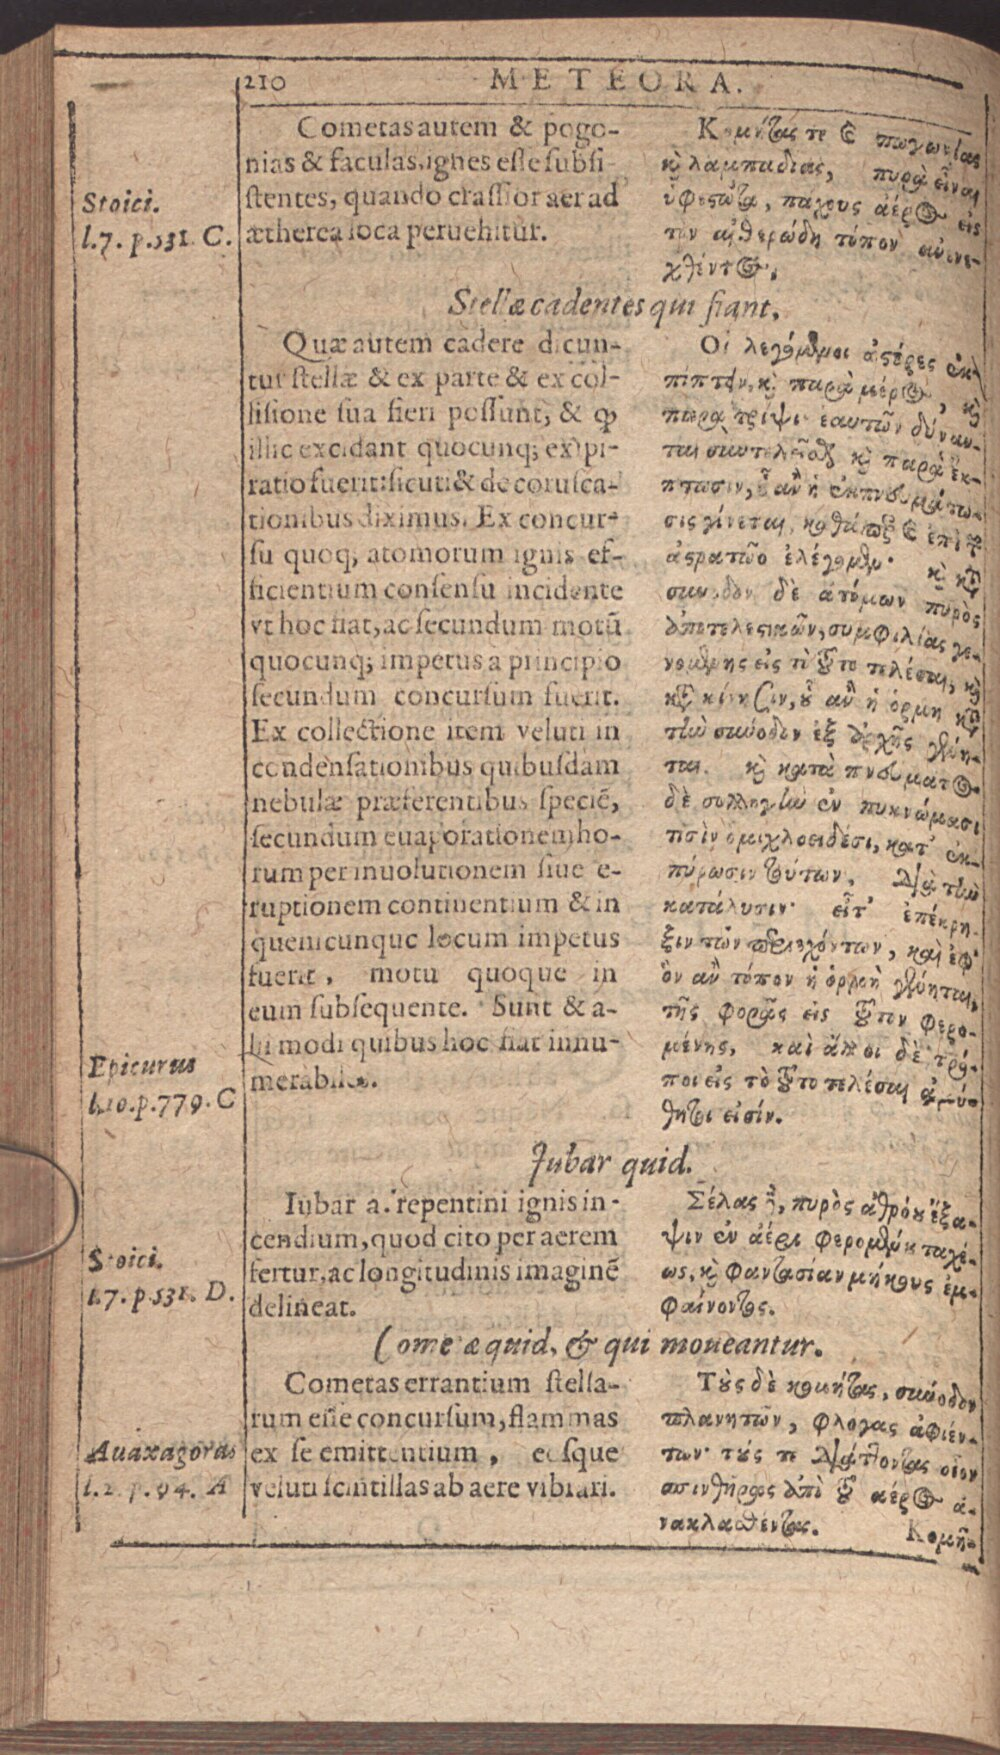 210
METEORA.
Cometas autem & pogo-
nias & faculas, ignes esse subsi-
stentes, quando crassior aer ad
ætherea loca peruehitur.
Stoici.
l.7. p.531. C.
Κομήτας τε & πωγωνίας
καὶ λαμπαδίας, πυρὰ εἶναι
ὑφεστῶτα, πάχους ἀέρος εἰς
τὸν αἰθερώδη τόπον ἀνενε-
χθέντος.
Stellæ cadentes qui fiant.
Quæ autem cadere dicun-
tur stellæ & ex parte & ex col-
lisione sua fieri possunt, & qȝ
illic excidant quocunq; expi-
ratio fuerit: sicuti & de corusca-
tionibus diximus. Ex concur-
su quoq; atomorum ignis ef-
ficientium consensu incidente
vt hoc fiat, ac secundum motū
quocunq; impetus à principio
secundum concursum fuerit.
Ex collectione item veluti in
condensationibus quibusdam
nebulæ præferentibus speciē,
secundum euaporationem ho-
rum per inuolutionem siue e-
ruptionem continentium & in
quemcunque locum impetus
fuerit, motu quoque in
eum subsequente. Sunt & a-
lii modi quibus hoc fiat innu-
merabiles.
Epicurus
l.10.p.779. C
Οἱ λεγόμενοι ἀστέρες ἐκ-
πίπτειν, καὶ παρὰ μέρος, καὶ
παρὰ τρίψιν ἑαυτῶν δύναν-
ται συντελεῖσθαι καὶ παρὰ ἔκ-
πτωσιν, οὗ ἂν ἡ ἐκπνευμάτω-
σις γίνεται, καθάπερ & ἐπὶ τῶν
ἀστραπῶν ἐλέγομεν. καὶ κατὰ
σύνοδον δὲ ἀτόμων πυρὸς
ἀποτελεστικῶν, συμφιλίας γε-
νομένης εἰς τὸ τοῦτο τελέσαι, καὶ
κατὰ κίνησιν, οὗ ἂν ἡ ὁρμὴ κατὰ
τὴν σύνοδον ἐξ ἀρχῆς γένη-
ται. καὶ κατὰ πνεύματος
δὲ συλλογὴν ἐν πυκνώμασι
τισὶν ὁμιχλοειδέσι, κατ' ἐκ-
πύρωσιν τούτων, διὰ τὴν
κατάλυσιν· εἶτ' ἐπέκρη-
ξιν τῶν περιεχόντων, καὶ ἐφ'
ὃν ἂν τόπον ἡ ὁρμὴ γένηται,
τῆς φορᾶς εἰς τοῦτον φερο-
μένης, καὶ ἄλλοι δὲ τρό-
ποι εἰς τὸ τοῦτο τελέσαι ἀμύ-
θητοι εἰσίν.
Iubar quid.
Iubar a. repentini ignis in-
cendium, quod cito per aerem
fertur, ac longitudinis imaginē
delineat.
Stoici.
l.7. p.531. D.
Σέλας δὲ, πυρὸς ἀθρόου ἔξα-
ψιν ἐν ἀέρι φερομένου ταχέ-
ως, καὶ φαντασίαν μήκους ἐμ-
φαίνοντος.
Cometæ quid, & qui moueantur.
Cometas errantium stella-
rum esse concursum, flammas
ex se emittentium, eosque
veluti scintillas ab aere vibrari.
Anaxagoras
l.2. p.94. A
Τοὺς δὲ κομήτας, σύνοδον
πλανητῶν, φλόγας ἀφιέν-
των· τούς τε διάττοντας οἷον
σπινθῆρας ἀπὸ τοῦ ἀέρος ἀ-
νακλασθέντας.
Κομῆ-